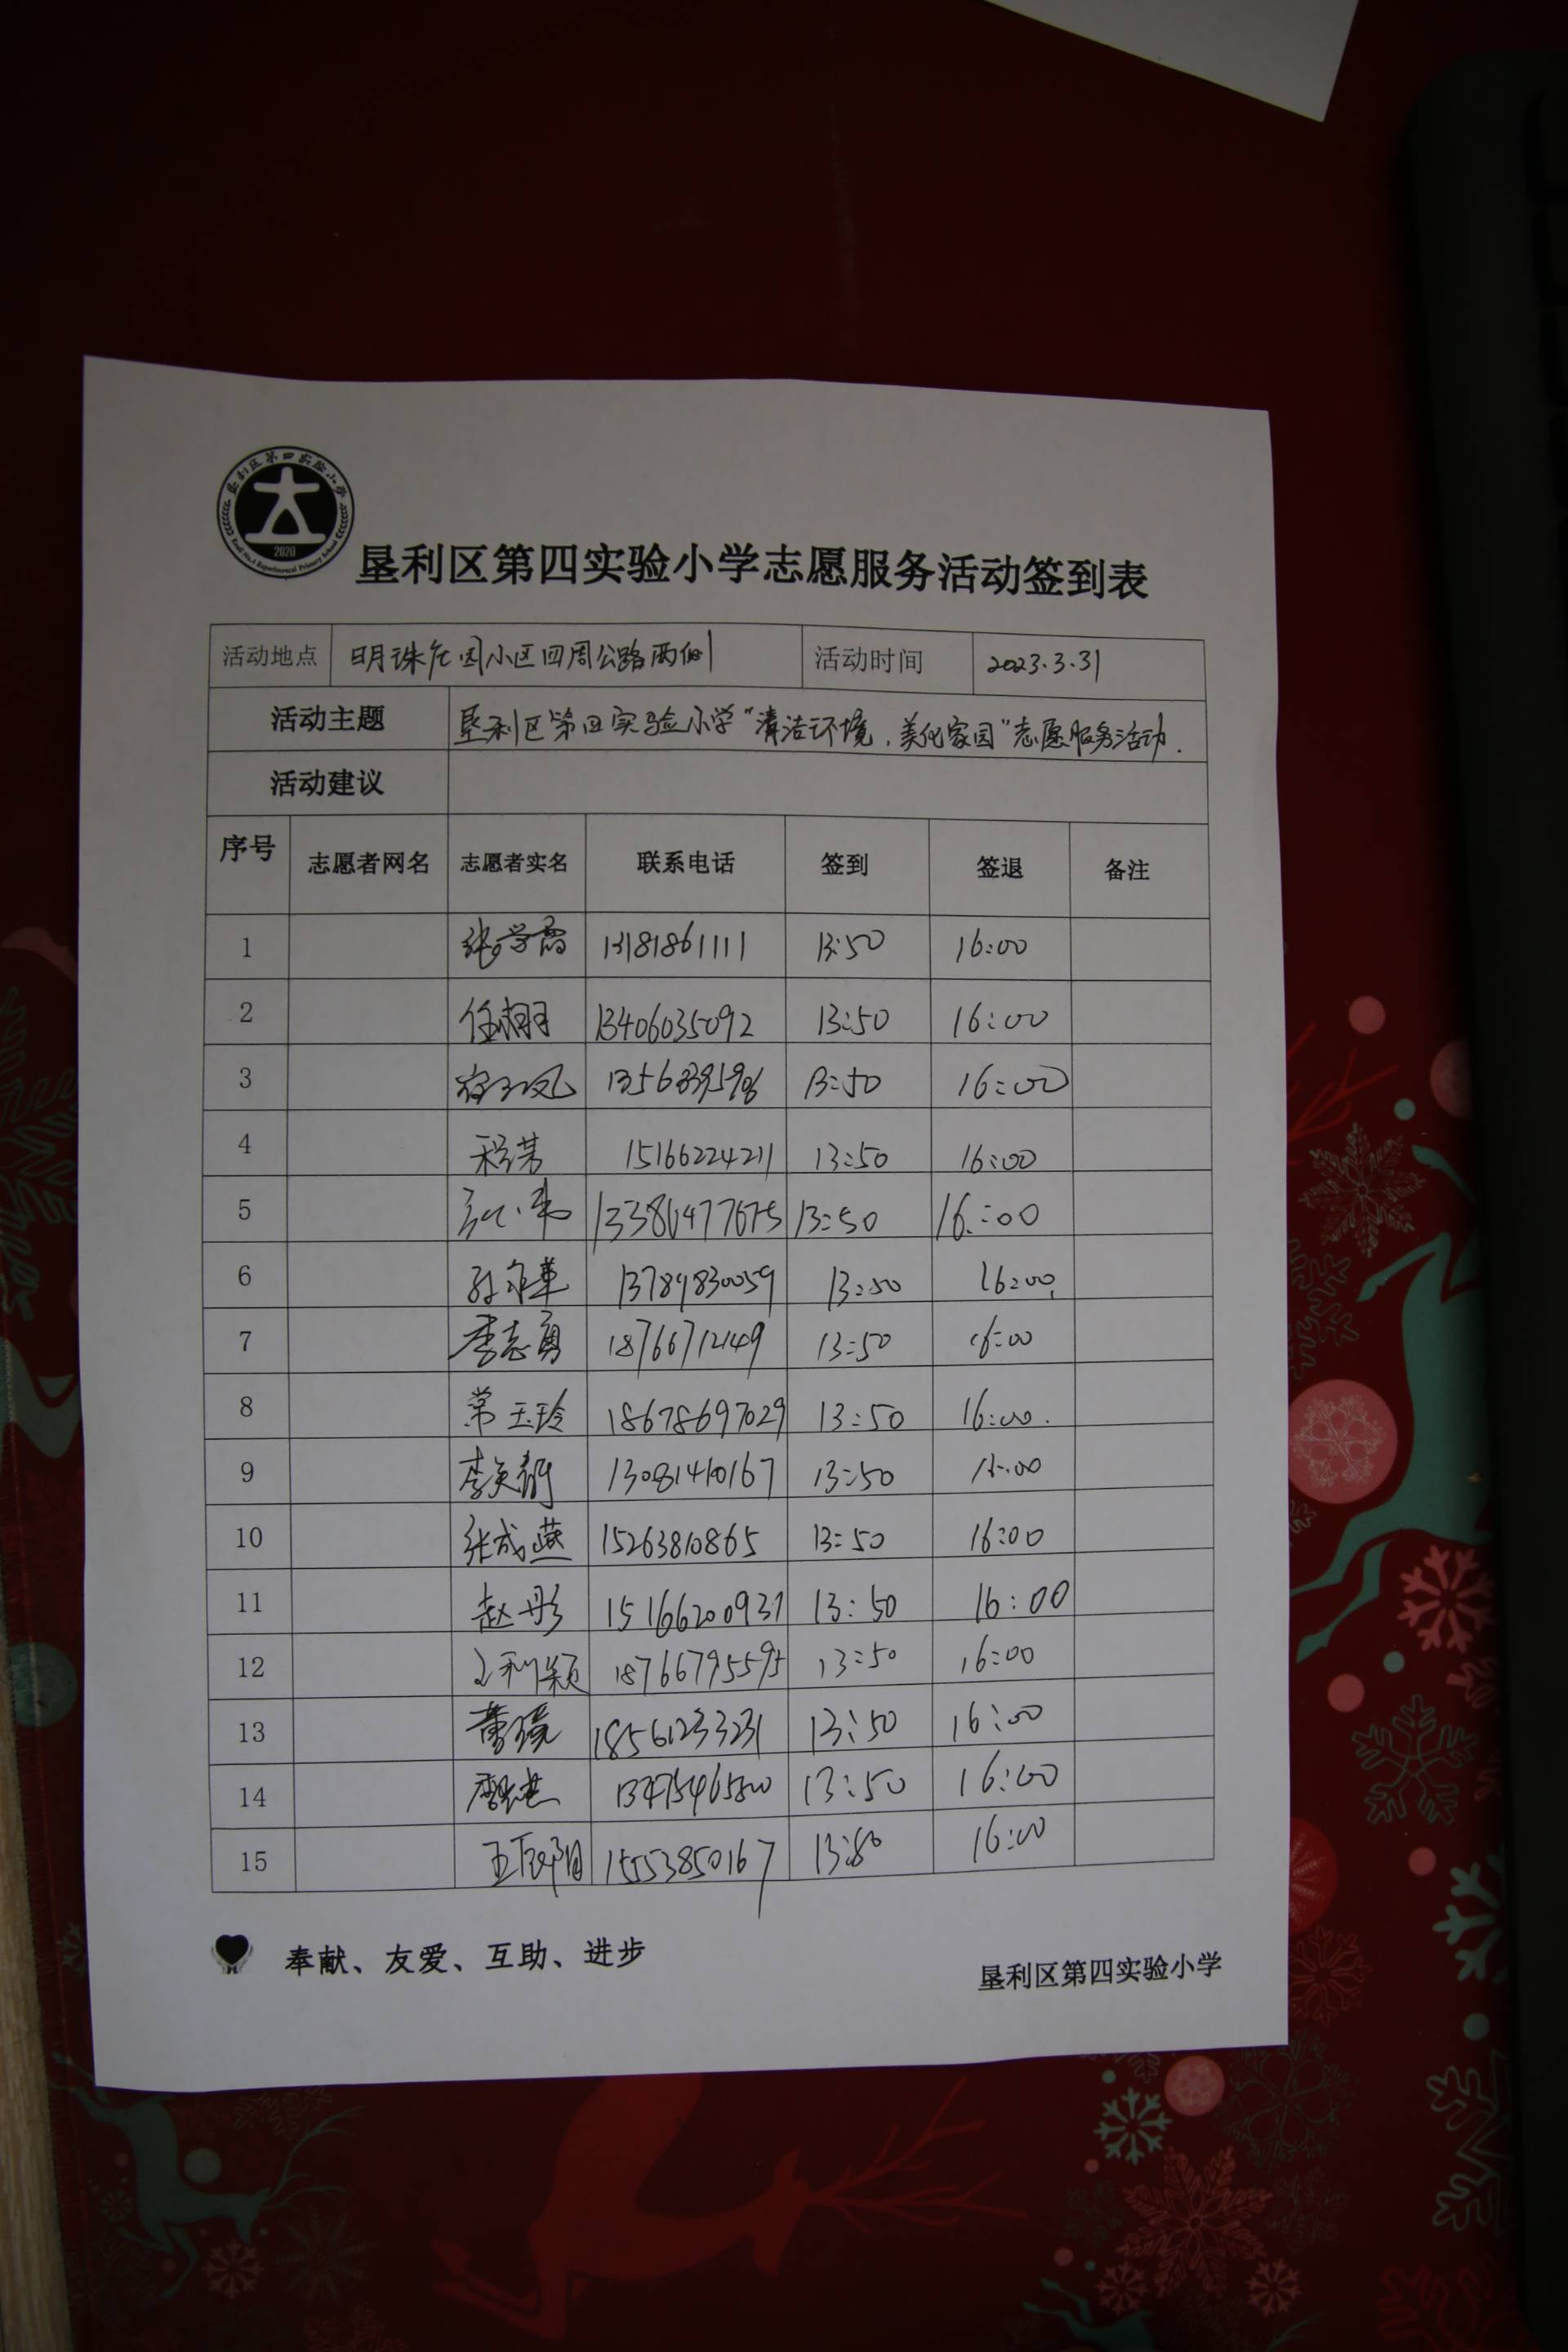 垦利区第四实验小学
2020
Kenli No.4 Experimental Primary School
垦利区第四实验小学志愿服务活动签到表
活动地点 明珠花园小区四周公路两侧 活动时间 2023.3.31
活动主题 垦利区第四实验小学“清洁环境,美化家园”志愿服务活动.
活动建议
序号 志愿者网名 志愿者实名 联系电话 签到 签退 备注
1 张学霞 13181861111 13:50 16:00
2 任栩羽 13406035092 13:50 16:00
3 13:50 16:00
4 程芳 15166224211 13:50 16:00
5 13:50 16:00
6 孙永华 13789830059 13:50 16:00
7 李志勇 18766712149 13:50 16:00
8 常玉玲 18678697029 13:50 16:00
9 李美静 13081410167 13:50 16:00
10 张成燕 15263810865 13:50 16:00
11 赵彤 15166200937 13:50 16:00
12 王利颖 18766795595 13:50 16:00
13 董璟 18561233231 13:50 16:00
14 13475465800 13:50 16:00
15 15553850167 13:50 16:00
奉献、友爱、互助、进步
垦利区第四实验小学